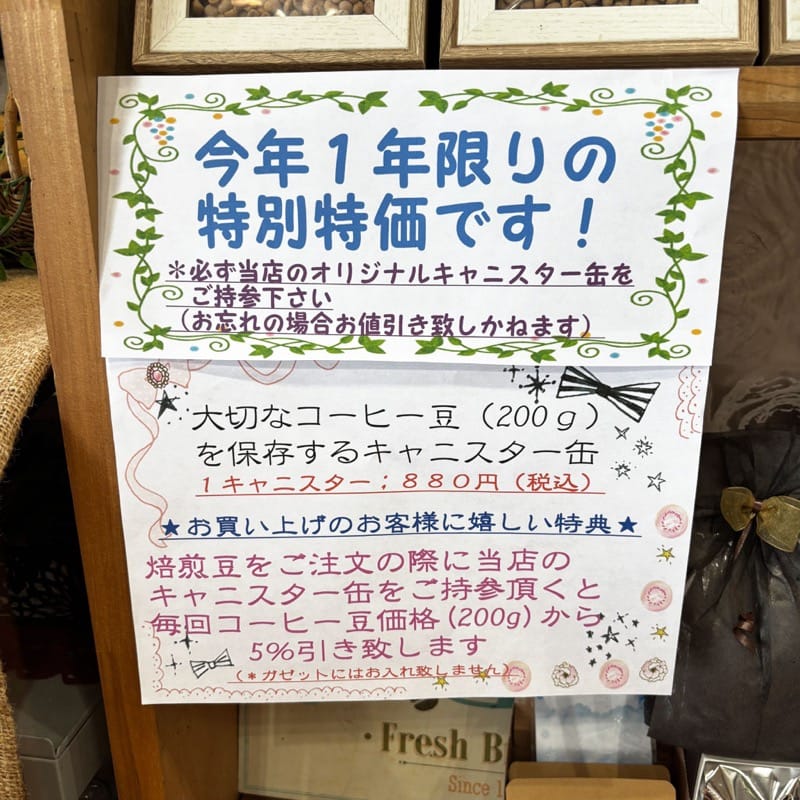 今年１年限りの
特別特価です！
＊必ず当店のオリジナルキャニスター缶を
ご持参下さい
（お忘れの場合お値引き致しかねます）
大切なコーヒー豆（200ｇ）
を保存するキャニスター缶
１キャニスター；８８０円（税込）
★お買い上げのお客様に嬉しい特典★
焙煎豆をご注文の際に当店の
キャニスター缶をご持参頂くと
毎回コーヒー豆価格(200g)から
5%引き致します
（*ガゼットにはお入れ致しません）
・Fresh
Since